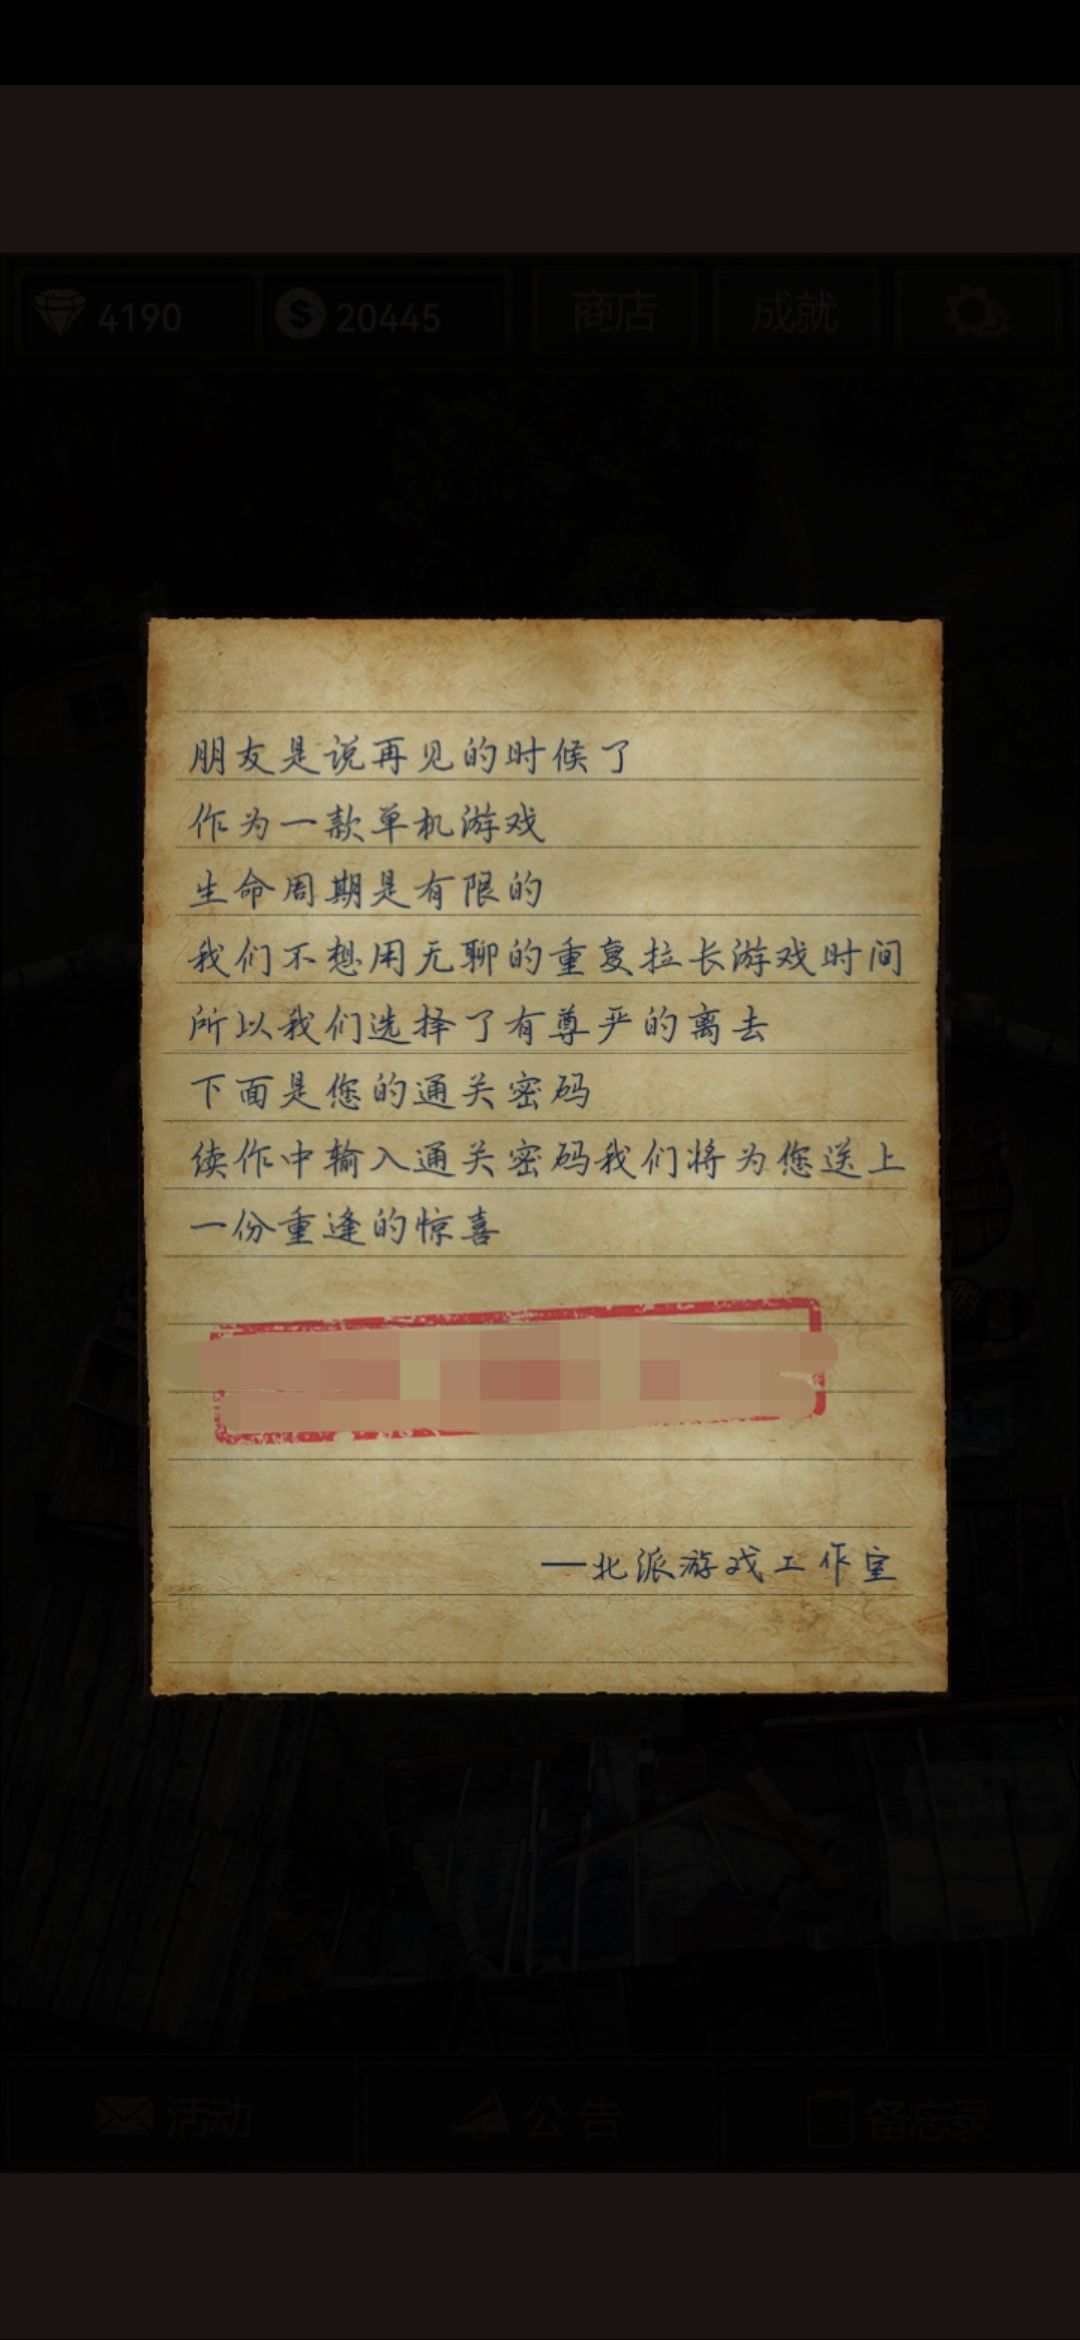 4190
20445
商店
成就
朋友是说再见的时候了
作为一款单机游戏
生命周期是有限的
我们不想用无聊的重复拉长游戏时间
所以我们选择了有尊严的离去
下面是您的通关密码
续作中输入通关密码我们将为您送上
一份重逢的惊喜
—北派游戏工作室
活动
公告
备忘录